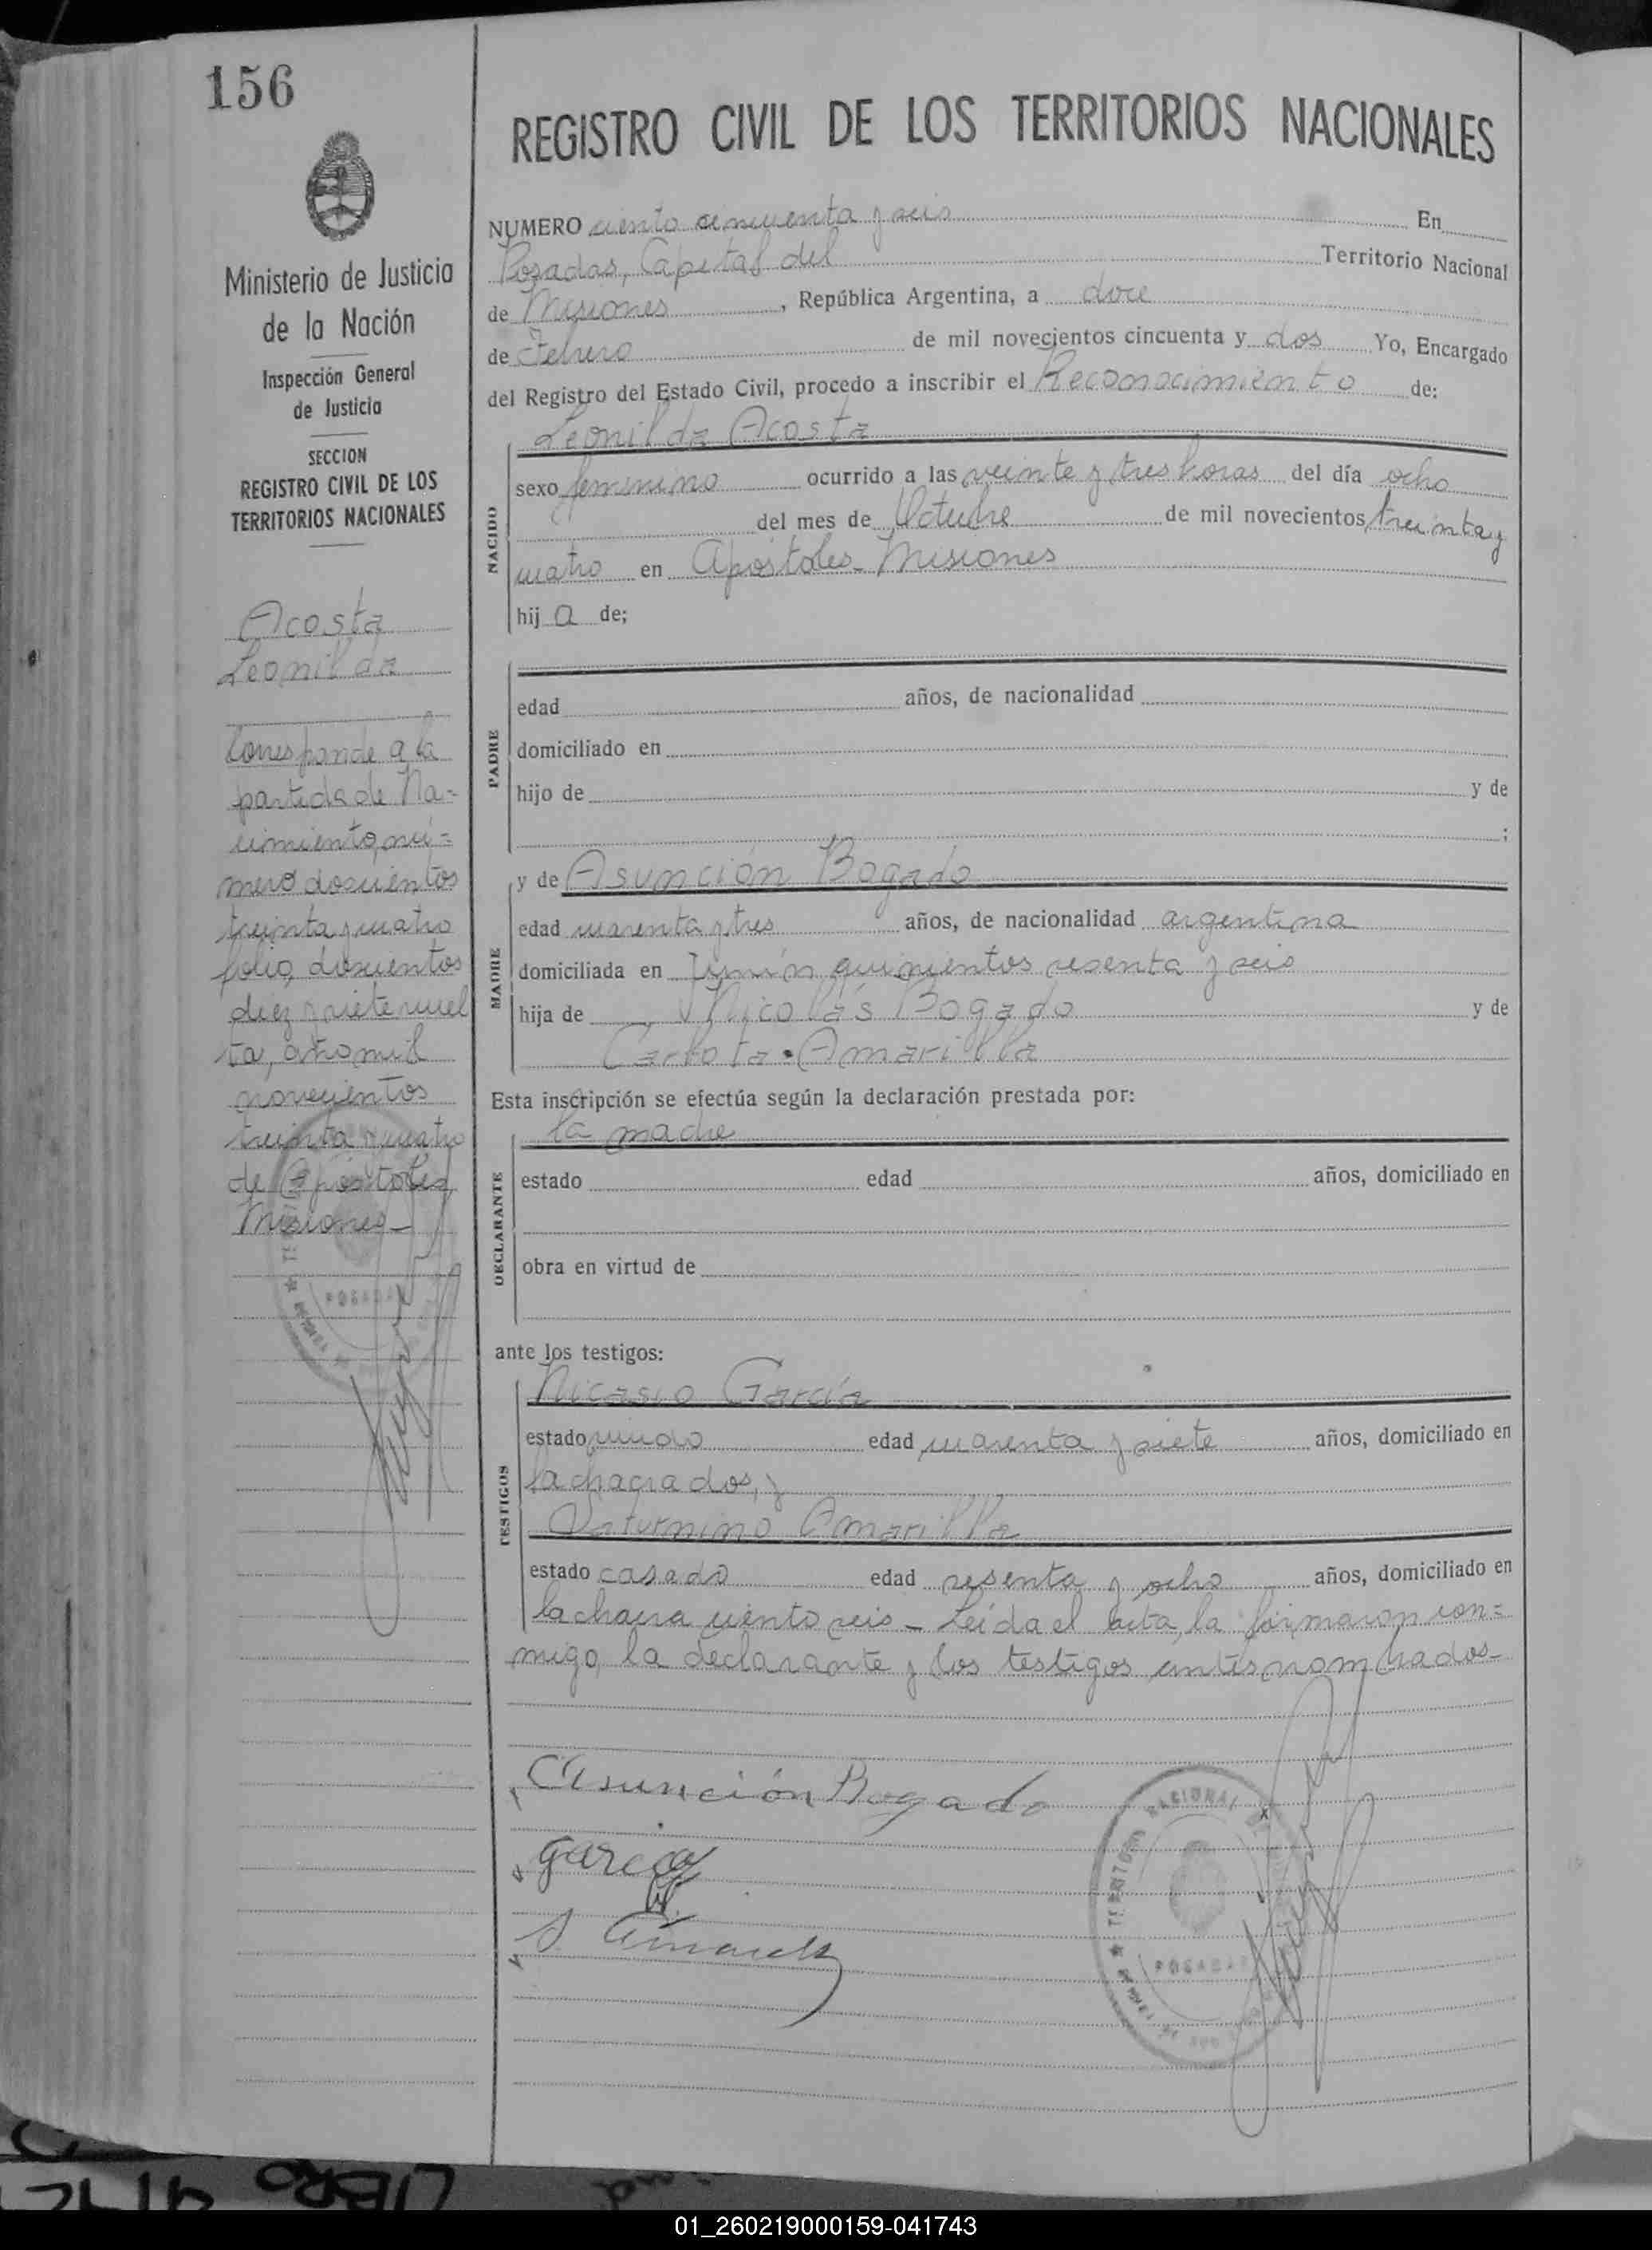 156
REGISTRO CIVIL DE LOS TERRITORIOS NACIONALES
Ministerio de Justicia
de la Nación
Inspección General
de Justicia
SECCION
REGISTRO CIVIL DE LOS
TERRITORIOS NACIONALES
Acosta
Leonilda
Corresponde a la
partida de Na=
cimiento nú=
mero doscientos
treinta y cuatro
folio, doscientos
diez y siete vuel
ta, año mil
novecientos
treinta y cuatro
de Apóstoles
Misiones_
POSADAS
NUMERO ciento cincuenta y seis En
Posadas, Capital del Territorio Nacional
de Misiones, República Argentina, a doce
de Febrero de mil novecientos cincuenta y dos Yo, Encargado
del Registro del Estado Civil, procedo a inscribir el Reconocimiento de:
Leonilda Acosta
NACIDO
sexo femenino ocurrido a las veinte y tres horas del día ocho
del mes de Octubre de mil novecientos treinta y
cuatro en Apóstoles_Misiones
hija de;
PADRE
edad años, de nacionalidad
domiciliado en
hijo de y de
;
MADRE
y de Asunción Bogado
edad cuarenta y tres años, de nacionalidad argentina
domiciliada en Junín quinientos sesenta y seis
hija de Nicolás Bogado y de
Carlota Amarilla
Esta inscripción se efectúa según la declaración prestada por:
la madre
DECLARANTE
estado edad años, domiciliado en
obra en virtud de
ante los testigos:
Nicasio García
TESTIGOS
estado viudo edad cuarenta y siete años, domiciliado en
la chacra dos, y
Saturnino Amarilla
estado casado edad sesenta y ocho años, domiciliado en
la chacra ciento seis_ Leída el acta, la firmaron con=
migo, la declarante y los testigos antes nombrados_
Asunción Bogado
García
S. Amarilla
TERRITORIO NACIONAL
POSADAS
LIBRO
01_260219000159-041743